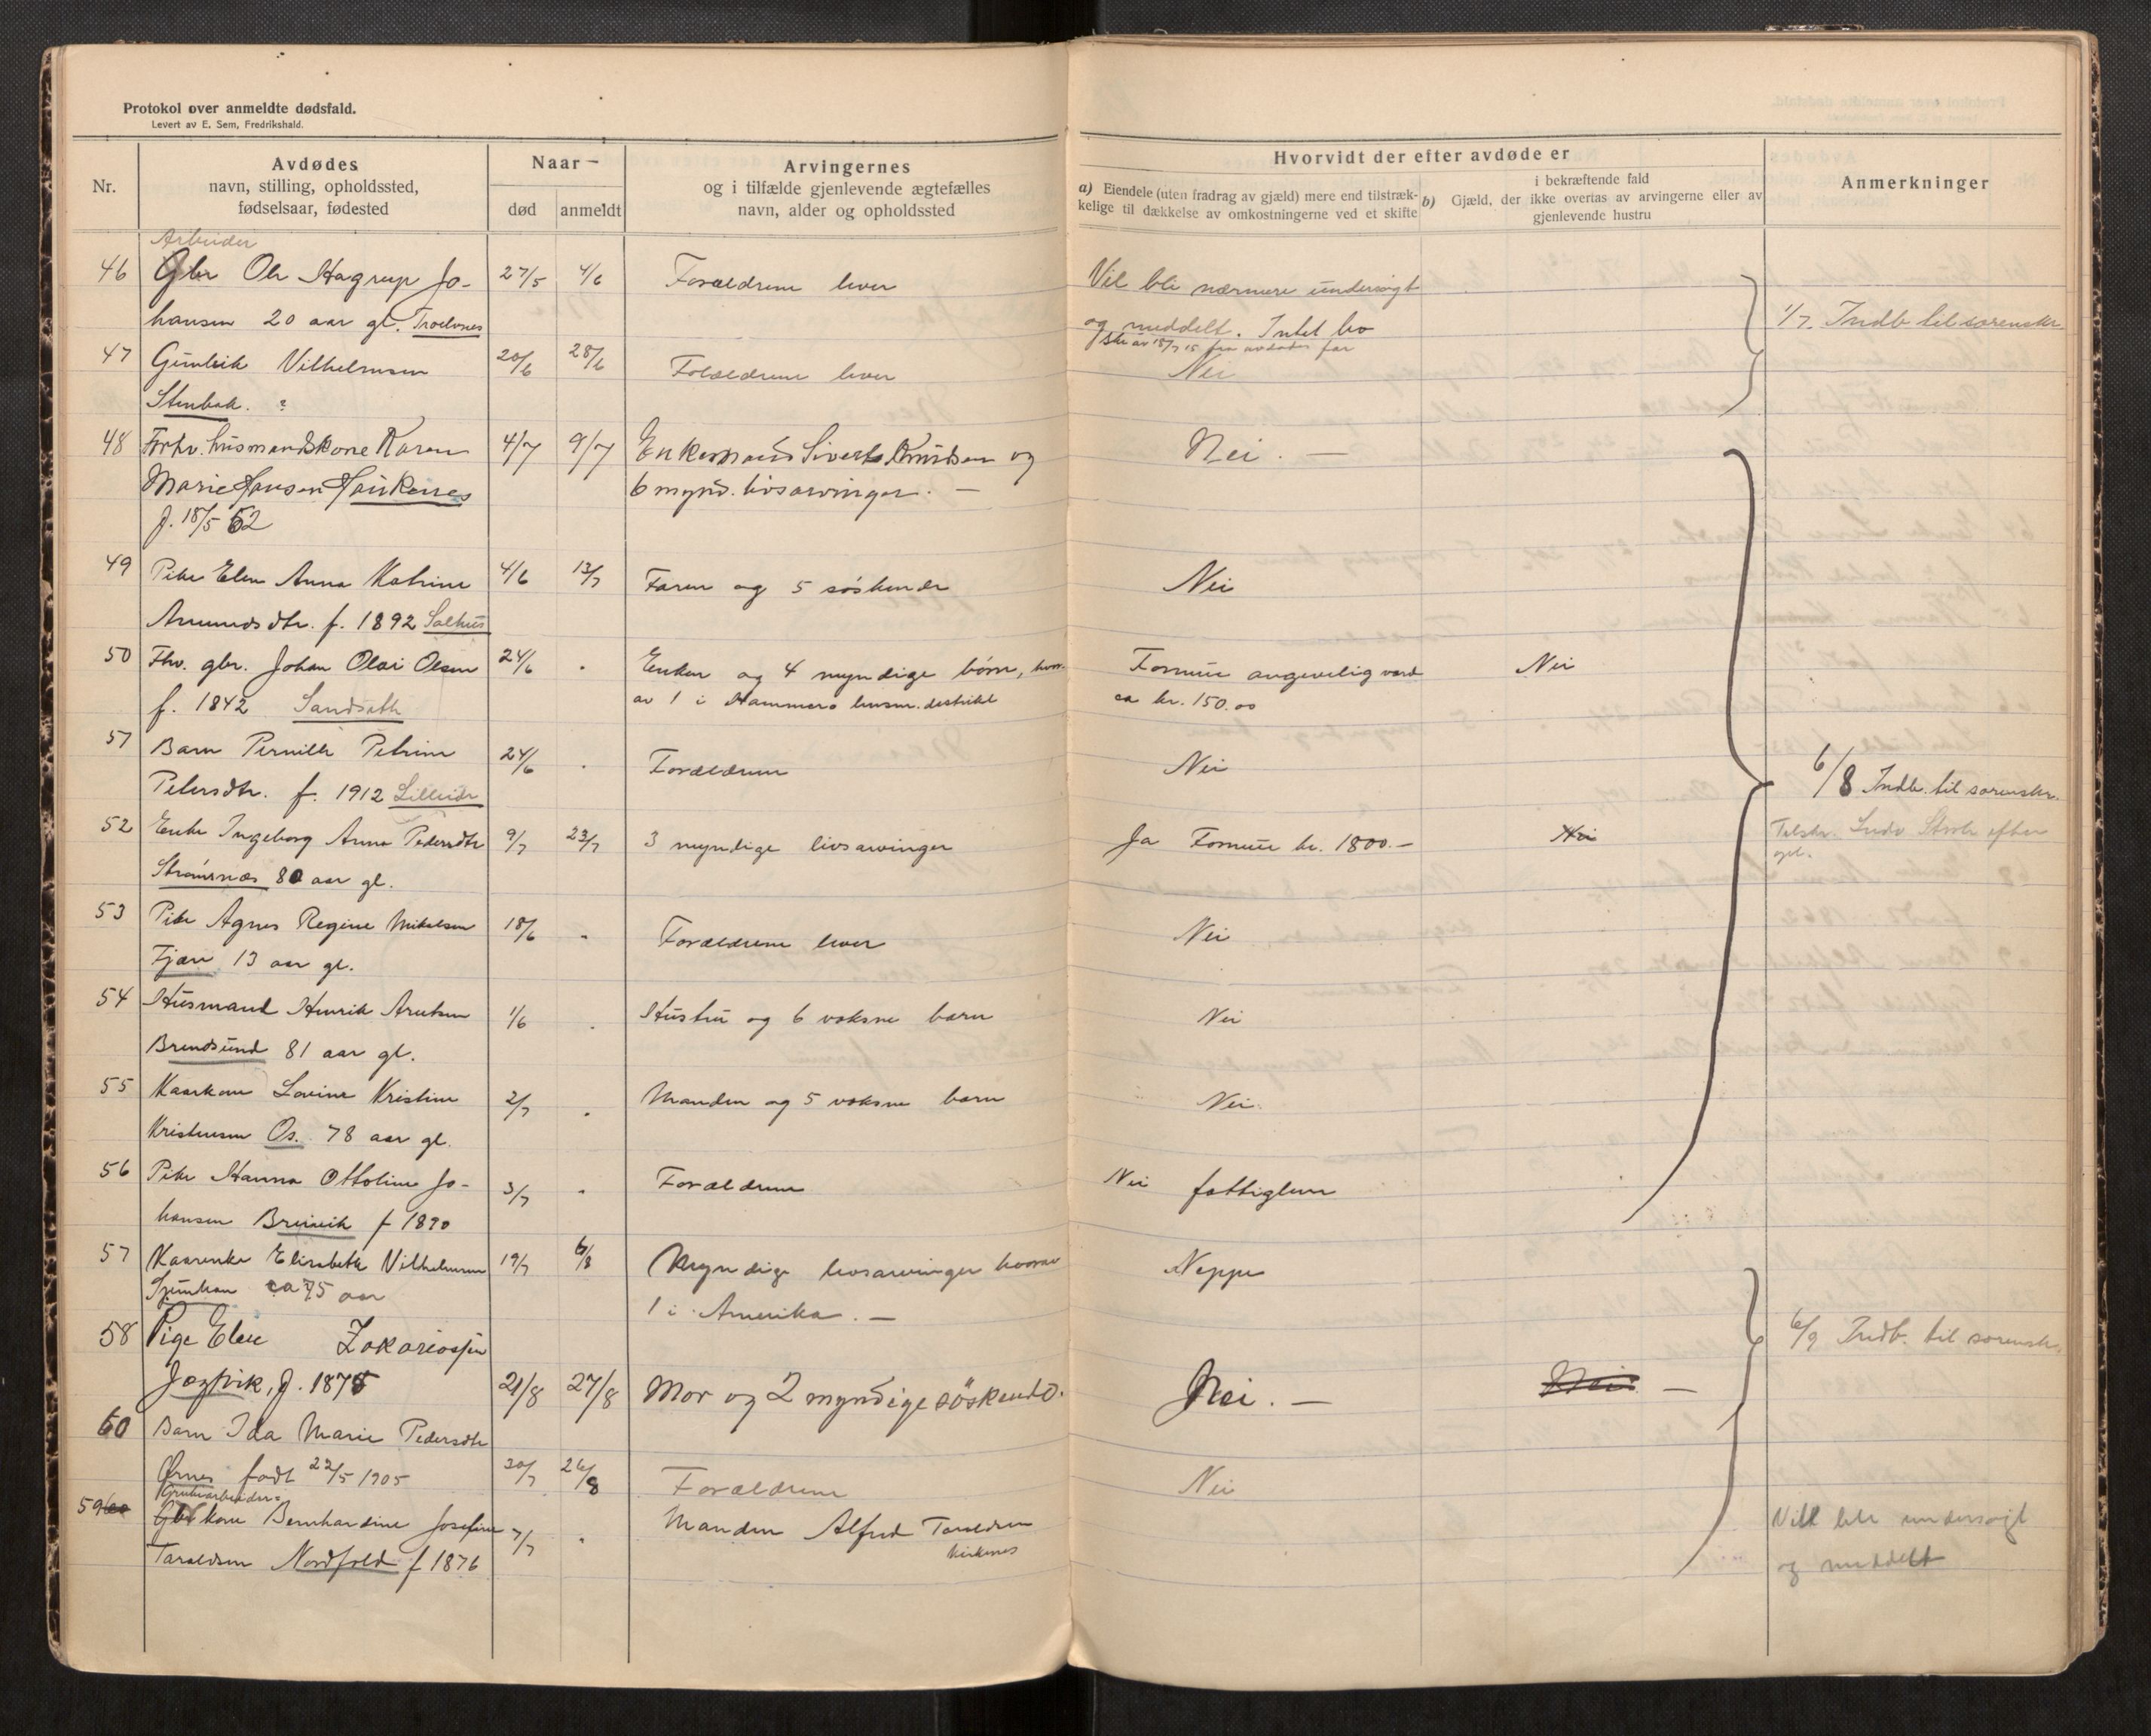 Protokol over anmeldte dødsfald.
Levert av E. Sem, Fredrikshald.
Nr.
Avdødes
navn, stilling, opholdssted,
fødselsaar, fødested
Naar —
død
anmeldt
Arvingernes
og i tilfælde gjenlevende ægtefælles
navn, alder og opholdssted
Hvorvidt der efter avdøde er
a) Eiendele (uten fradrag av gjæld) mere end tilstræk-
kelige til dækkelse av omkostningerne ved et skifte
i bekræftende fald
b) Gjæld, der ikke overtas av arvingerne eller av
gjenlevende hustru
Anmerkninger
Arbeider
46 Gbr Ole Hagrup Jo- 27/5 4/6 Forældrene lever Vil bli nærmere undersøgt
hansen 20 aar gl. og meddelt. Intet bo 1/7. Indb til sorenskr.
18/7 15 fra avdødes far
47 Vilhelmsen 20/6 28/6 Forældrene lever Nei
Stenbak. ?
48 Forhv. husmandskone Karen 4/7 9/7 Enkemand Sivert Knudsen og Nei. —
Marie Hansen Haukenes 6 mynd. livsarvinger. —
f. 18/5 52
49 Pike Elen Anna Katrine 4/6 13/7 Faren og 5 søskende Nei
Amundsdtr. f. 1892 Salhus
50 Fhv. gbr. Johan Olai Olsen 24/6 " Enken og 4 myndige børn, hvor- Formue angivelig værd Nei
f. 1842 Sandsæth av 1 i Hammerø lensm. distrikt ca kr. 150.00
51 Barn Pernille Petrine 24/6 " Forældrene Nei
Petersdtr. f. 1912 6/8 Indb. til sorenskr.
52 Enke Ingeborg Anna Pedersdtr 9/7 23/7 3 myndige livsarvinger Ja Formue kr. 1800.— Nei
Strømsnæs 80 aar gl.
53 Pike Agnes Regine Mikelsen 18/6 " Forældrene lever Nei
Fjære 13 aar gl.
54 Husmand Henrik Arntsen 1/6 " Hustru og 6 voksne barn Nei
Brendsund 81 aar gl.
55 Kaarkone Lovine Kristine 2/7 " Manden og 5 voksne barn Nei.
Kristensen Os. 78 aar gl.
56 Pike Hanna Ottoline Jo- 3/7 " Forældrene Nei fattiglem
hansen Breivik f 1890
57 Kaarenke Elisabeth Vilhelmsen 19/7 6/8 Myndige livsarvinger hvorav Neppe
ca 75 aar 1 i Amerika. —
58 Pige Elen Zakariassen 6/9 Indb. til sorenskr.
f. 1875 21/8 27/8 Mor og 2 myndige søskende. Nei. — Nei —
60 Barn Ida Marie Pedersdtr
Ørnes født 22/5 1905 30/7 26/8 Forældrene Nei
Grubearbeider-
59 60 Gbr kone Bernhardine Josefine 7/7 " Manden Alfred Taraldsen Vill bli undersøgt
Taraldsen Nordfold f 1876 Kirkenes og meddelt